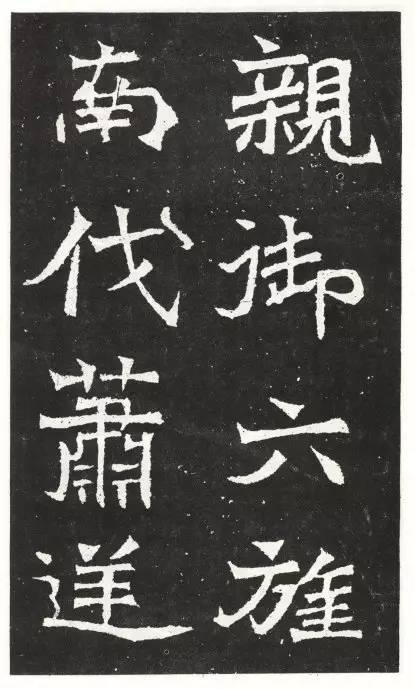 親御六旌
南伐蕭逆